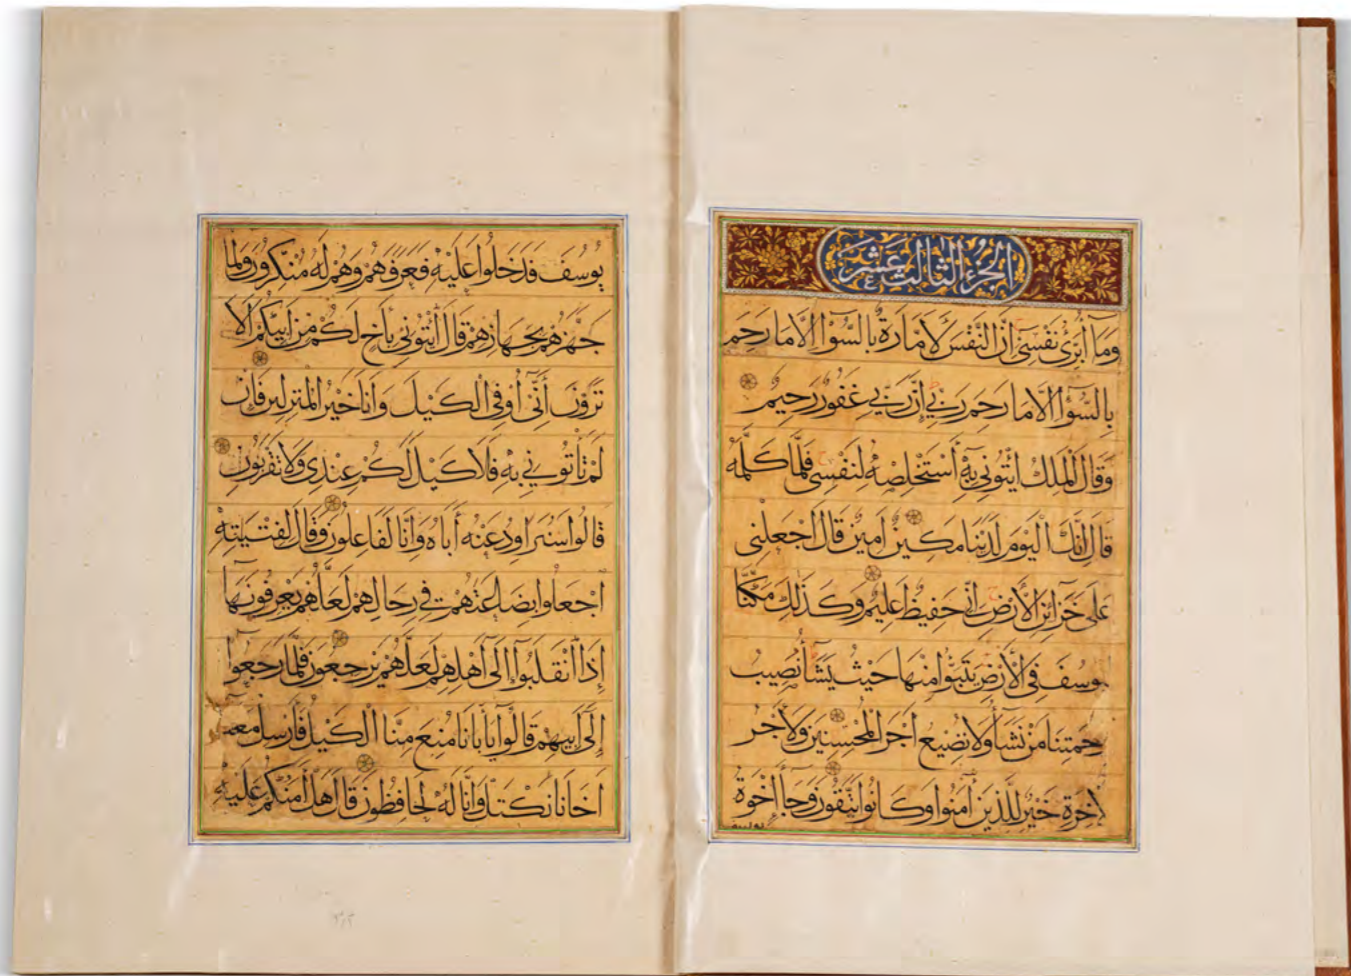 الجزء الثالث عشر
وَمَا أُبَرِّئُ نَفْسِي إِنَّ النَّفْسَ لَأَمَّارَةٌ بِالسُّوۤءِ إِلَّا مَا رَحِمَ
بِالسُّوۤءِ إِلَّا مَا رَحِمَ رَبِّي إِنَّ رَبِّي غَفُورٌ رَحِيمٌ
وَقَالَ الْمَلِكُ ائْتُونِي بِهِ أَسْتَخْلِصْهُ لِنَفْسِي فَلَمَّا كَلَّمَهُ
قَالَ إِنَّكَ الْيَوْمَ لَدَيْنَا مَكِينٌ أَمِينٌ قَالَ اجْعَلْنِي
عَلَى خَزَآئِنِ الْأَرْضِ إِنِّي حَفِيظٌ عَلِيمٌ وَكَذَلِكَ مَكَّنَّا
يوسُفَ فِي الْأَرْضِ يَتَبَوَّأُ مِنْهَا حَيْثُ يَشَآءُ نُصِيبُ
حْمَتِنَا مَنْ نَشَآءُ وَلَا نُضِيعُ أَجْرَ الْمُحْسِنِينَ وَلَأَجْرُ
لآخِرَةِ خَيْرٌ لِلَّذِينَ آمَنُوا وَكَانُوا يَتَّقُونَ وَجَآءَ إِخْوَةُ
يُوسُفَ فَدَخَلُوا عَلَيْهِ فَعَرَفَهُمْ وَهُمْ لَهُ مُنْكِرُونَ وَلَمَّا
جَهَّزَهُمْ بِجَهَازِهِمْ قَالَ ائْتُونِي بِأَخٍ لَكُمْ مِنْ أَبِيكُمْ أَلَا
تَرَوْنَ أَنِّي أُوفِي الْكَيْلَ وَأَنَا خَيْرُ الْمُنْزِلِينَ فَإِنْ
لَمْ تَأْتُونِي بِهِ فَلَا كَيْلَ لَكُمْ عِنْدِي وَلَا تَقْرَبُونِ
قَالُوا سَنُرَاوِدُ عَنْهُ أَبَاهُ وَإِنَّا لَفَاعِلُونَ وَقَالَ لِفِتْيَتِهِ
اجْعَلُوا بِضَاعَتَهُمْ فِي رِحَالِهِمْ لَعَلَّهُمْ يَعْرِفُونَهَا
إِذَا انْقَلَبُوا إِلَى أَهْلِهِمْ لَعَلَّهُمْ يَرْجِعُونَ فَلَمَّا رَجَعُوا
إِلَى أَبِيهِمْ قَالُوا يَا أَبَانَا مُنِعَ مِنَّا الْكَيْلُ فَأَرْسِلْ مَعَنَا
أَخَانَا نَكْتَلْ وَإِنَّا لَهُ لَحَافِظُونَ قَالَ هَلْ آمَنُكُمْ عَلَيْهِ